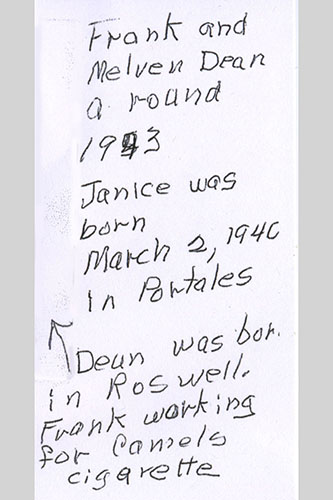 Frank and
Melven Dean
a round
1943
Janice was
born
March 2, 1940
in Portales
Dean was bor.
in Roswell.
Frank working
for Camels
cigarette